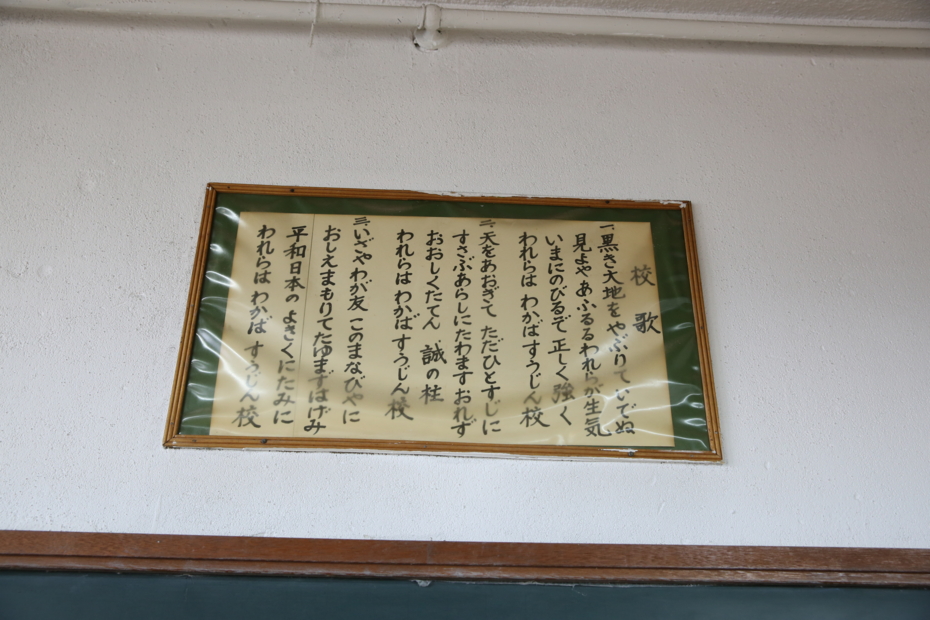 校歌
一、黒き大地を やぶりていでぬ
見よや あふるる われらが生気
いまにのびるぞ 正しく強く
われらは わかば すうじん校
二、天をあおぎて ただひとすじに
すさぶあらしに たわまず おれず
おおしくたてん 誠の柱
われらは わかば すうじん校
三、いざや わが友 このまなびやに
おしえまもりて たゆまずはげみ
平和日本の よさくにたみに
われらは わかば すうじん校